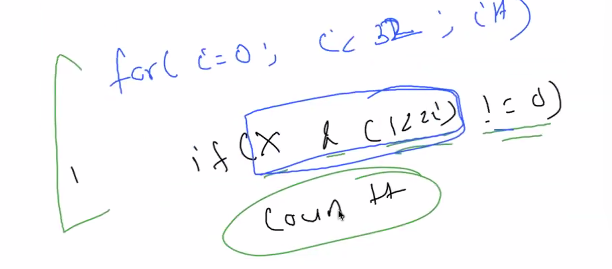 for( i=0; i<32; i++)
if(x & (1<<i) != 0)
count++